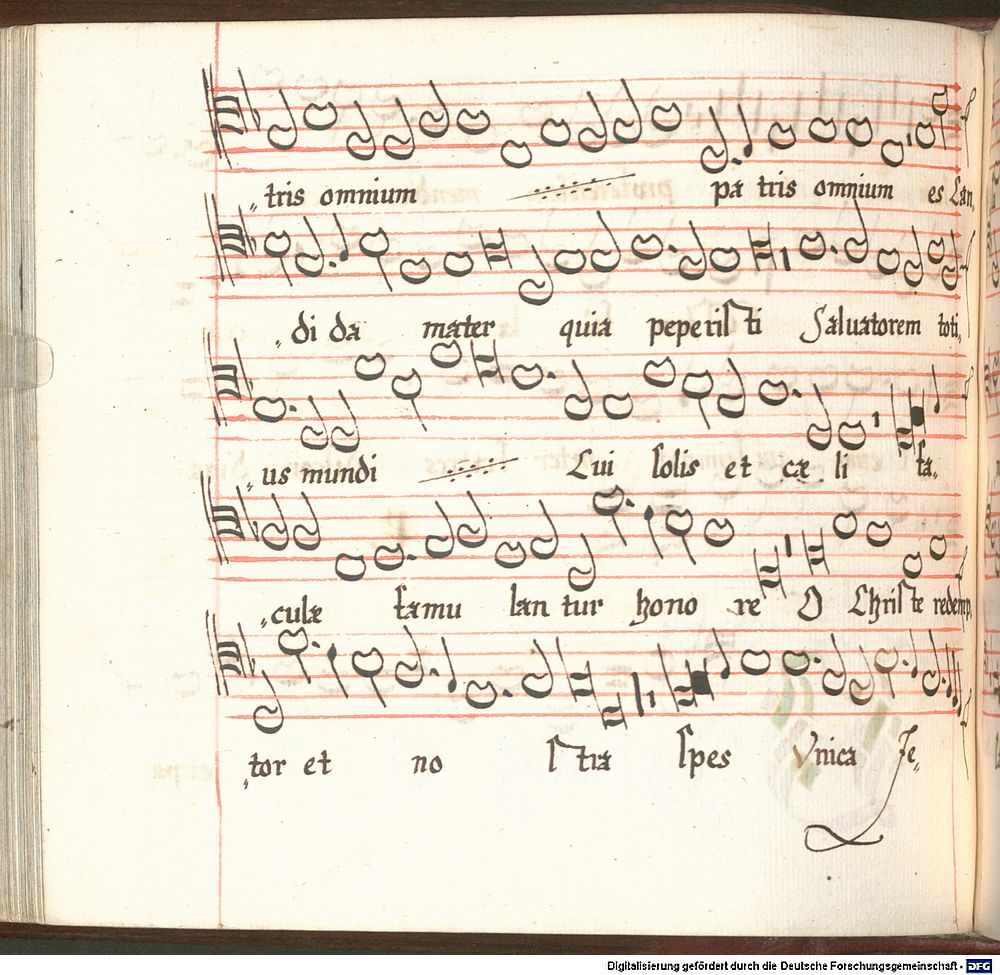 tris omnium pa tris omnium es Lan,
di da mater quia peperisti Saluatorem toti,
us mundi Cui solis et cæ li fa,
culæ famu lan tur hono re O Christe redemp,
tor et no stra spes Vnica Je,
Digitalisierung gefördert durch die Deutsche Forschungsgemeinschaft - DFG